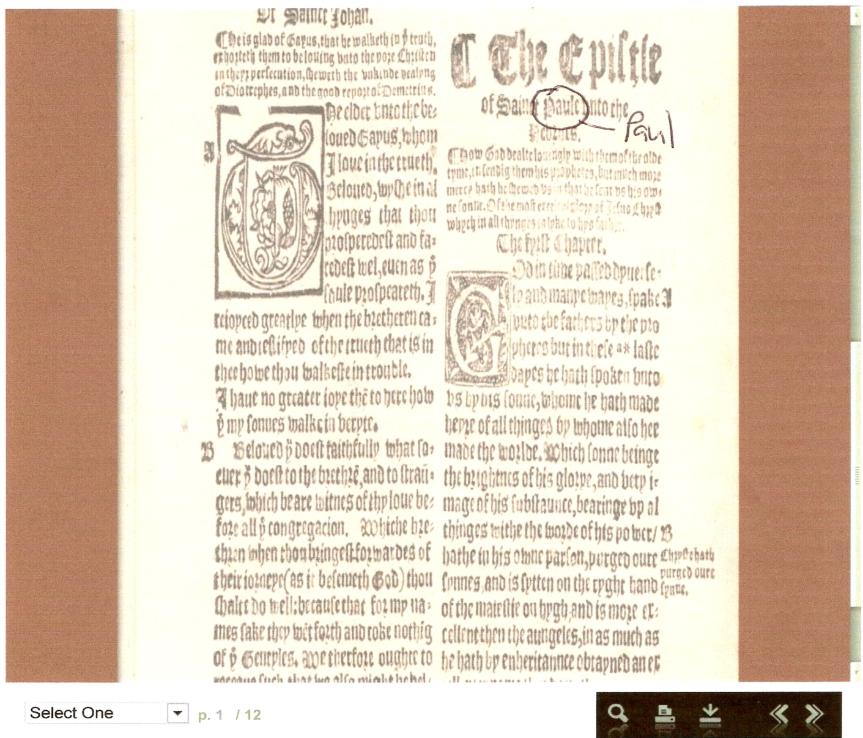 Of Sainct Johan.
C He is glad of Gayus, that he walketh in ẏ truth,
exhorteth them to be louing vnto the pore Christen
in theyr persecution, sheweth the vnkinde dealyng
of Diotrephes, and the good report of Demetrius.
A
THe elder vnto the be-
loued Gayus, whom
I loue in the trueth.
Beloued, wyshe in al
thynges that thou
prosperedst and fa-
redest wel, euen as ẏ
soule prospereth. I
reioyced greatlye when the bretheren ca-
me and testifyed of the trueth that is in
thee howe thou walkeste in trouble.
I haue no greater ioye thē to here how
ẏ my sonnes walke in veryte.
B Beloued ẏ doest faithfully what so-
euer ẏ doest to the brethrē, and to stran-
gers, which beare witnes of thy loue be-
fore all ẏ congregacion. Whiche bre-
thren when thou bringest forwardes of
their iorneye (as it besemeth God) thou
shalt do well: because that for my na-
mes sake they wēt forth and toke nothīg
of ẏ Gentyles. We therfore oughte to
receaue such, that we also might be hel-
C The Epistle
of Saint Paule vnto the
Paul
Hebrues.
C How God dealte louingly with them of the olde
tyme, in sendīg them his prophetes, but much more
mercy hath he shewed vs in that he sent vs his ow-
ne sonne. Of the most excellent glory of Jesus Chryst
whych in all thynges is lyke to hys father.
The fyrst Chapter.
GOd in time passed dyuerse-
ly and manye wayes, spake A
vnto the fathers by the pro
phetes but in these a* laste
dayes he hath spoken vnto
vs by his sonne, whome he hath made
heyre of all thinges by whome also hee
made the worlde. Which sonne beinge
the brightnes of his glorye, and very i-
mage of his substaunce, bearinge vp al
thinges withe the worde of his power/ B
hathe in his owne parson, purged oure
sonnes, and is sytten on the ryght hand
Chryst hath
purged oure
synne.
of the maiestie on hygh, and is more ex-
cellent then the aungeles, in as much as
he hath by enheritannce obtayned an ex
Select One
p. 1 / 12